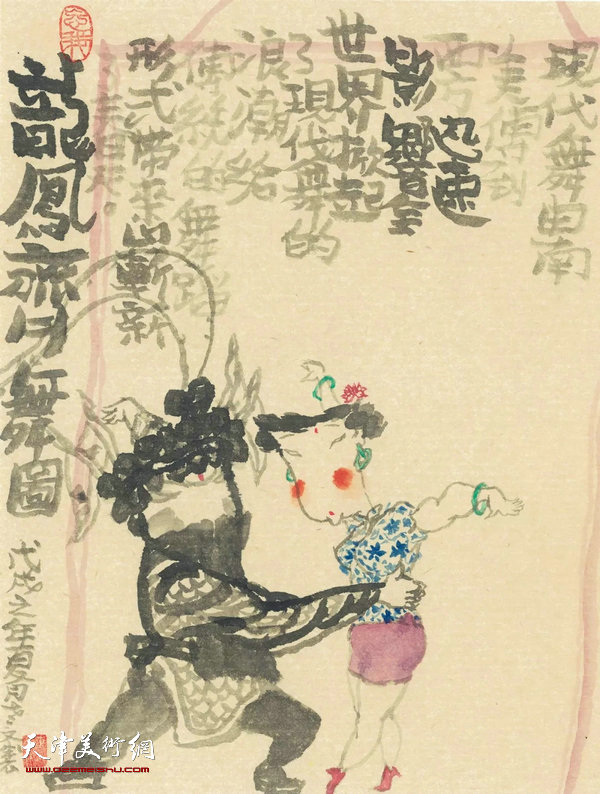 現代舞由南
美傳到
西方迅速
影響全
世界掀起
了現代舞的
浪潮給
傳統的舞蹈
形式帶來嶄新
龍鳳齊舞圖
戊戌之年夏月
天津美術網
www.022meishu.com